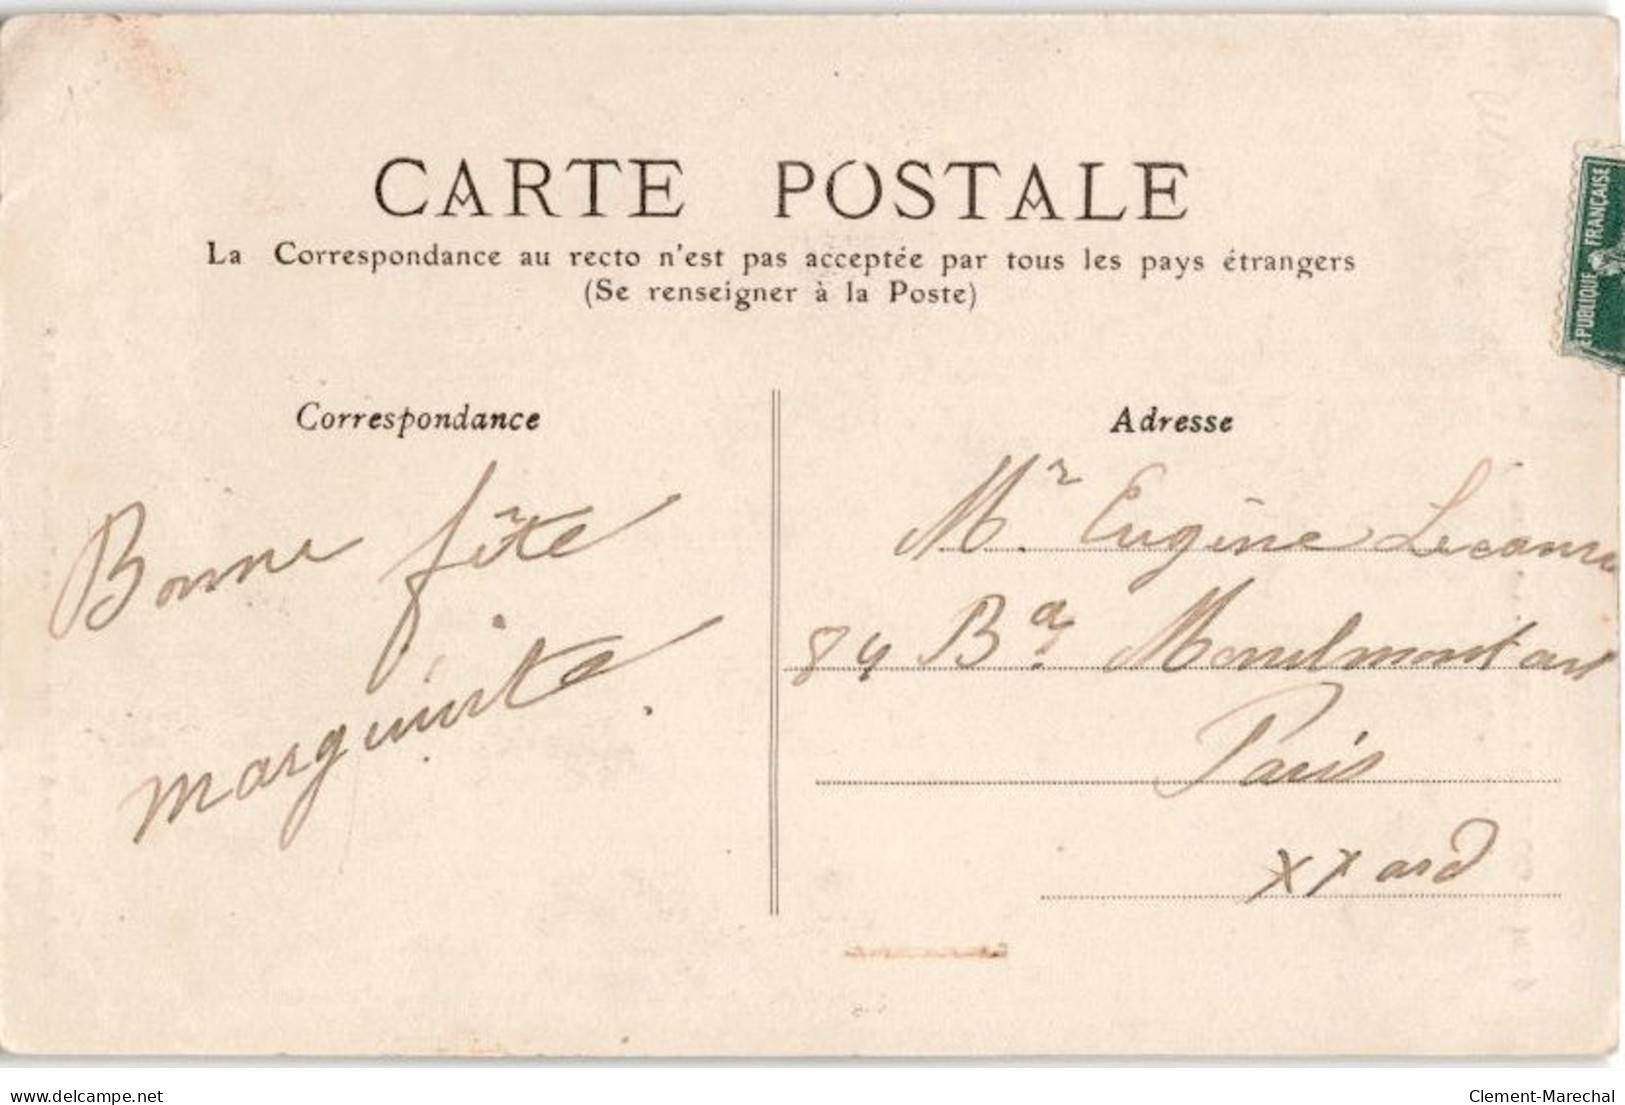 CARTE POSTALE
La Correspondance au recto n'est pas acceptée par tous les pays étrangers
(Se renseigner à la Poste)
Correspondance
Adresse
EPUBLIQUE FRANÇAISE
Bonne fête
marguerite
Mr. Eugène
84 Bd.
Paris
XX ard
delcampe.net
Clement-Marechal